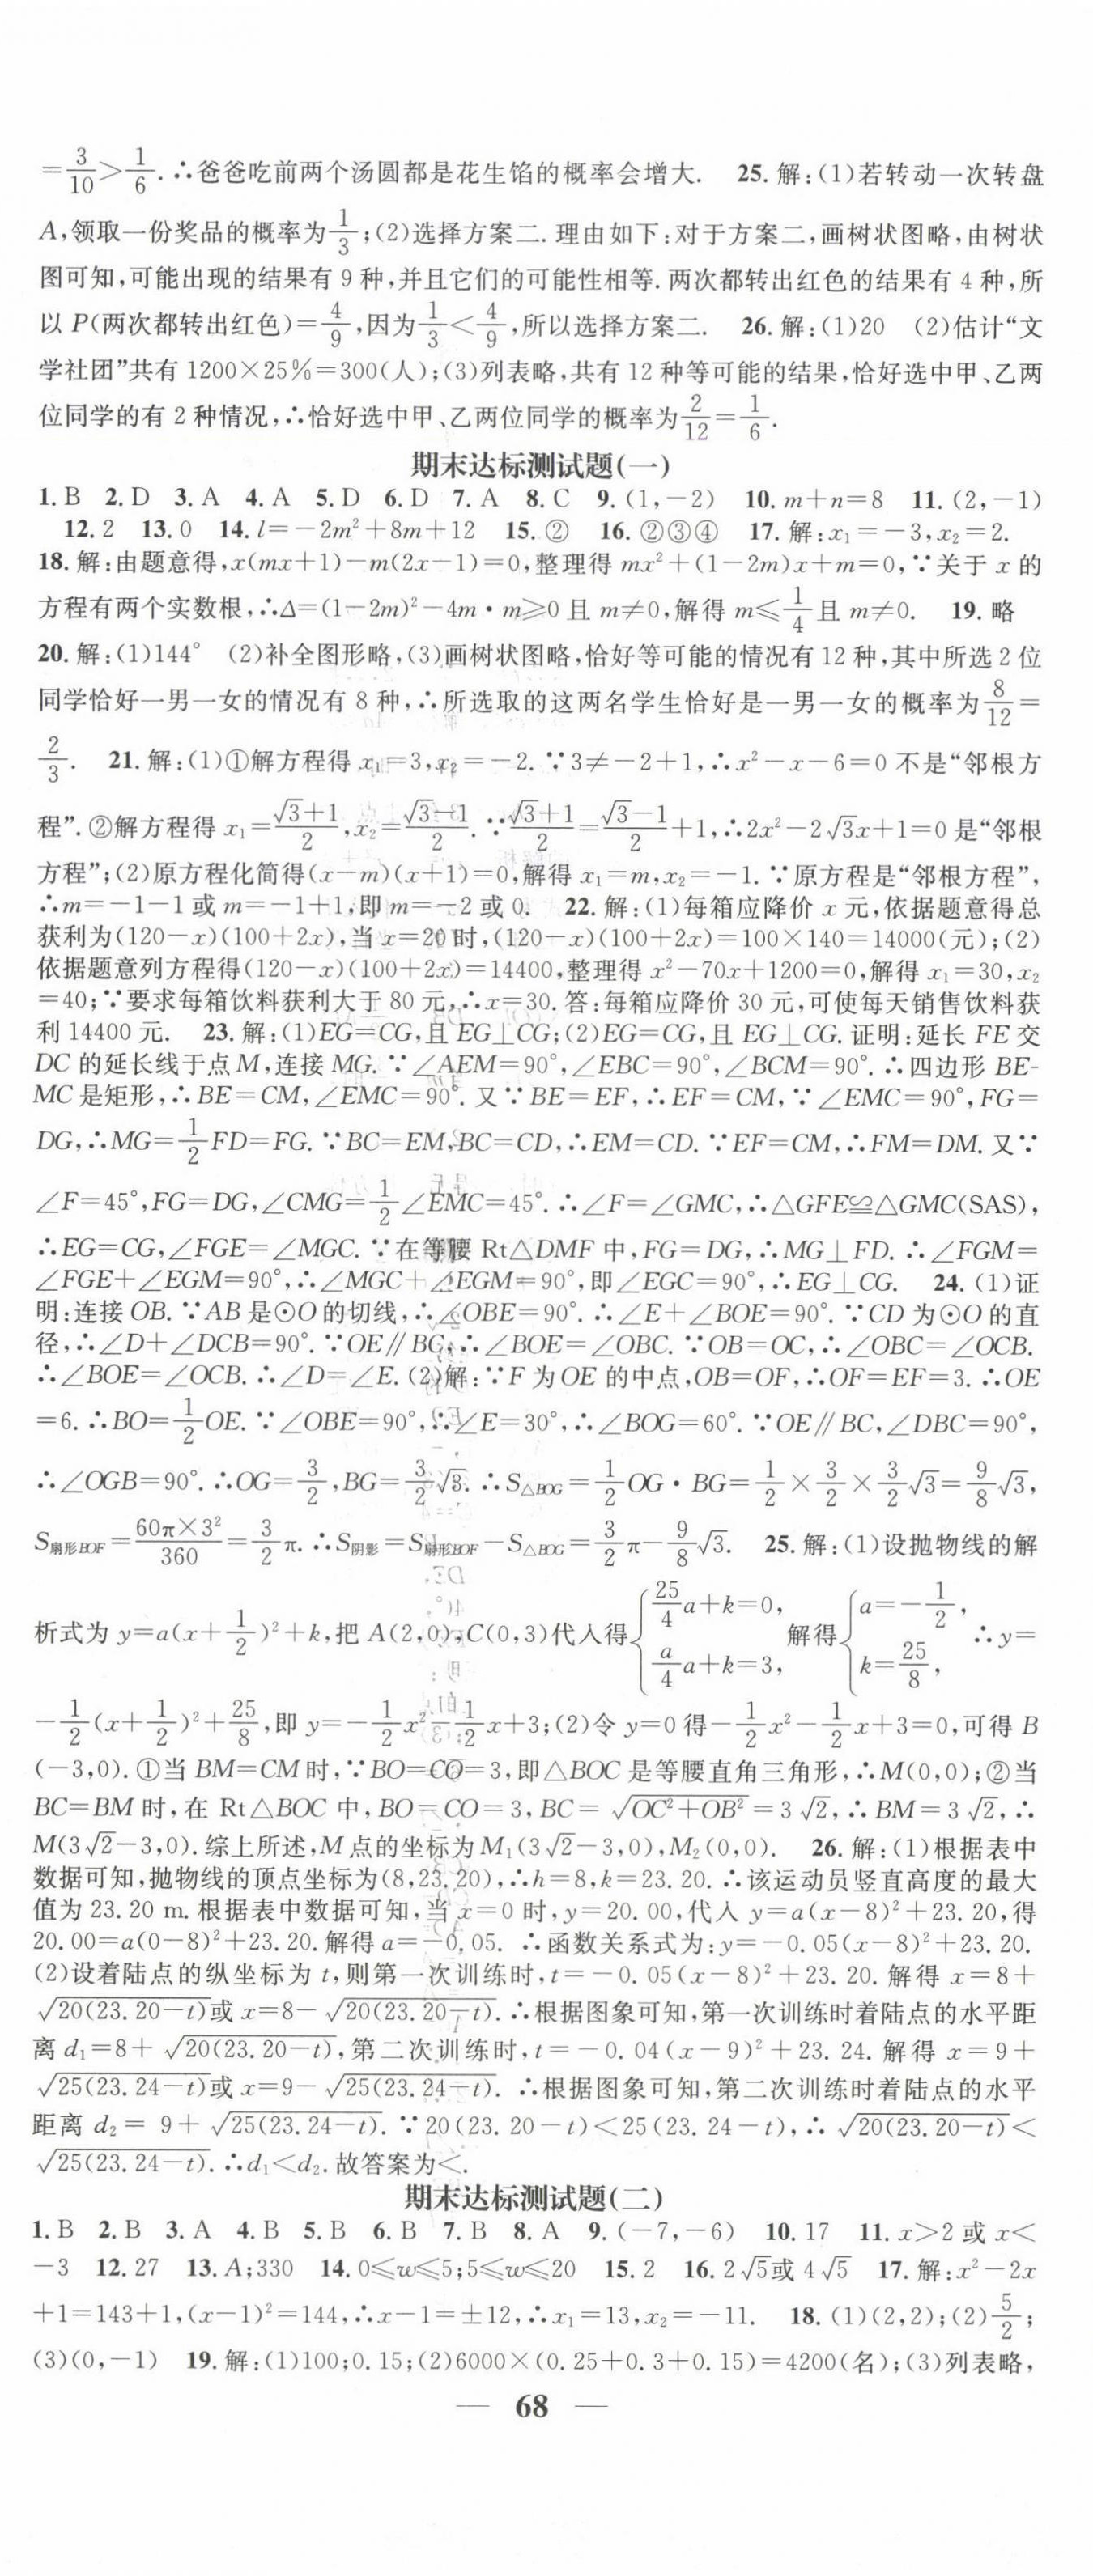 =3/10>1/6.∴爸爸吃前两个汤圆都是花生馅的概率会增大. 25.解:(1)若转动一次转盘
A,领取一份奖品的概率为1/3;(2)选择方案二.理由如下:对于方案二,画树状图略,由树状
图可知,可能出现的结果有9种,并且它们的可能性相等.两次都转出红色的结果有4种,所
以P(两次都转出红色)=4/9,因为1/3<4/9,所以选择方案二. 26.解:(1)20 (2)估计“文
学社团”共有1200×25%=300(人);(3)列表略,共有12种等可能的结果,恰好选中甲、乙两
位同学的有2种情况,∴恰好选中甲、乙两位同学的概率为2/12=1/6.
期末达标测试题(一)
1.B 2.D 3.A 4.A 5.D 6.D 7.A 8.C 9.(1,-2) 10.m+n=8 11.(2,-1)
12.2 13.0 14.l=-2m²+8m+12 15.② 16.②③④ 17.解:x₁=-3,x₂=2.
18.解:由题意得,x(mx+1)-m(2x-1)=0,整理得mx²+(1-2m)x+m=0,∵关于x的
方程有两个实数根,∴Δ=(1-2m)²-4m·m≥0且m≠0,解得m≤1/4且m≠0. 19.略
20.解:(1)144° (2)补全图形略,(3)画树状图略,恰好等可能的情况有12种,其中所选2位
同学恰好一男一女的情况有8种,∴所选取的这两名学生恰好是一男一女的概率为8/12=
2/3. 21.解:(1)①解方程得x₁=3,x₂=-2.∵3≠-2+1,∴x²-x-6=0不是“邻根方
程”.②解方程得x₁=(√3+1)/2,x₂=(√3-1)/2.∵(√3+1)/2=(√3-1)/2+1,∴2x²-2√3x+1=0是“邻根
方程”;(2)原方程化简得(x-m)(x+1)=0,解得x₁=m,x₂=-1.∵原方程是“邻根方程”,
∴m=-1-1或m=-1+1,即m=-2或0. 22.解:(1)每箱应降价x元,依据题意得总
获利为(120-x)(100+2x),当x=20时,(120-x)(100+2x)=100×140=14000(元);(2)
依据题意列方程得(120-x)(100+2x)=14400,整理得x²-70x+1200=0,解得x₁=30,x₂
=40;∵要求每箱饮料获利大于80元,∴x=30.答:每箱应降价30元,可使每天销售饮料获
利14400元. 23.解:(1)EG=CG,且EG⊥CG;(2)EG=CG,且EG⊥CG.证明:延长FE交
DC的延长线于点M,连接MG.∵∠AEM=90°,∠EBC=90°,∠BCM=90°.∴四边形BE-
MC是矩形,∴BE=CM,∠EMC=90°.又∵BE=EF,∴EF=CM,∵∠EMC=90°,FG=
DG,∴MG=1/2FD=FG.∵BC=EM,BC=CD,∴EM=CD.∵EF=CM,∴FM=DM.又∵
∠F=45°,FG=DG,∠CMG=1/2∠EMC=45°.∴∠F=∠GMC,∴△GFE≌△GMC(SAS),
∴EG=CG,∠FGE=∠MGC.∵在等腰Rt△DMF中,FG=DG,∴MG⊥FD.∴∠FGM=
∠FGE+∠EGM=90°,∴∠MGC+∠EGM=90°,即∠EGC=90°,∴EG⊥CG. 24.(1)证
明:连接OB.∵AB是⊙O的切线,∴∠OBE=90°.∴∠E+∠BOE=90°.∵CD为⊙O的直
径,∴∠D+∠DCB=90°.∵OE∥BC,∴∠BOE=∠OBC.∵OB=OC,∴∠OBC=∠OCB.
∴∠BOE=∠OCB.∴∠D=∠E.(2)解:∵F为OE的中点,OB=OF,∴OF=EF=3.∴OE
=6.∴BO=1/2OE.∵∠OBE=90°,∴∠E=30°,∴∠BOG=60°.∵OE∥BC,∠DBC=90°,
∴∠OGB=90°.∴OG=3/2,BG=3/2√3.∴S△BOG=1/2OG·BG=1/2×3/2×3/2√3=9/8√3,
S扇形BOF=60π×3²/360=3/2π.∴S阴影=S扇形BOF-S△BOG=3/2π-9/8√3. 25.解:(1)设抛物线的解
析式为y=a(x+1/2)²+k,把A(2,0),C(0,3)代入得{25/4a+k=0, a/4a+k=3,解得{a=-1/2, k=25/8,∴y=
-1/2(x+1/2)²+25/8,即y=-1/2x²-1/2x+3;(2)令y=0得-1/2x²-1/2x+3=0,可得B
(-3,0).①当BM=CM时,∵BO=CO=3,即△BOC是等腰直角三角形,∴M(0,0);②当
BC=BM时,在Rt△BOC中,BO=CO=3,BC=√(OC²+OB²)=3√2,∴BM=3√2,∴
M(3√2-3,0).综上所述,M点的坐标为M₁(3√2-3,0),M₂(0,0). 26.解:(1)根据表中
数据可知,抛物线的顶点坐标为(8,23.20),∴h=8,k=23.20.∴该运动员竖直高度的最大
值为23.20 m.根据表中数据可知,当x=0时,y=20.00,代入y=a(x-8)²+23.20,得
20.00=a(0-8)²+23.20.解得a=-0.05.∴函数关系式为:y=-0.05(x-8)²+23.20.
(2)设着陆点的纵坐标为t,则第一次训练时,t=-0.05(x-8)²+23.20.解得x=8+
√(20(23.20-t))或x=8-√(20(23.20-t)).∴根据图象可知,第一次训练时着陆点的水平距
离d₁=8+√(20(23.20-t)),第二次训练时,t=-0.04(x-9)²+23.24.解得x=9+
√(25(23.24-t))或x=9-√(25(23.24-t)).∴根据图象可知,第二次训练时着陆点的水平
距离d₂=9+√(25(23.24-t)).∵20(23.20-t)<25(23.24-t),∴√(20(23.20-t))<
√(25(23.24-t)).∴d₁<d₂.故答案为<.
期末达标测试题(二)
1.B 2.B 3.A 4.B 5.B 6.B 7.B 8.A 9.(-7,-6) 10.17 11.x>2或x<
-3 12.27 13.A;330 14.0≤w≤5;5≤w≤20 15.2 16.2√5或4√5 17.解:x²-2x
+1=143+1,(x-1)²=144,∴x-1=±12,∴x₁=13,x₂=-11. 18.(1)(2,2);(2)5/2;
(3)(0,-1) 19.解:(1)100;0.15;(2)6000×(0.25+0.3+0.15)=4200(名);(3)列表略,
— 68 —